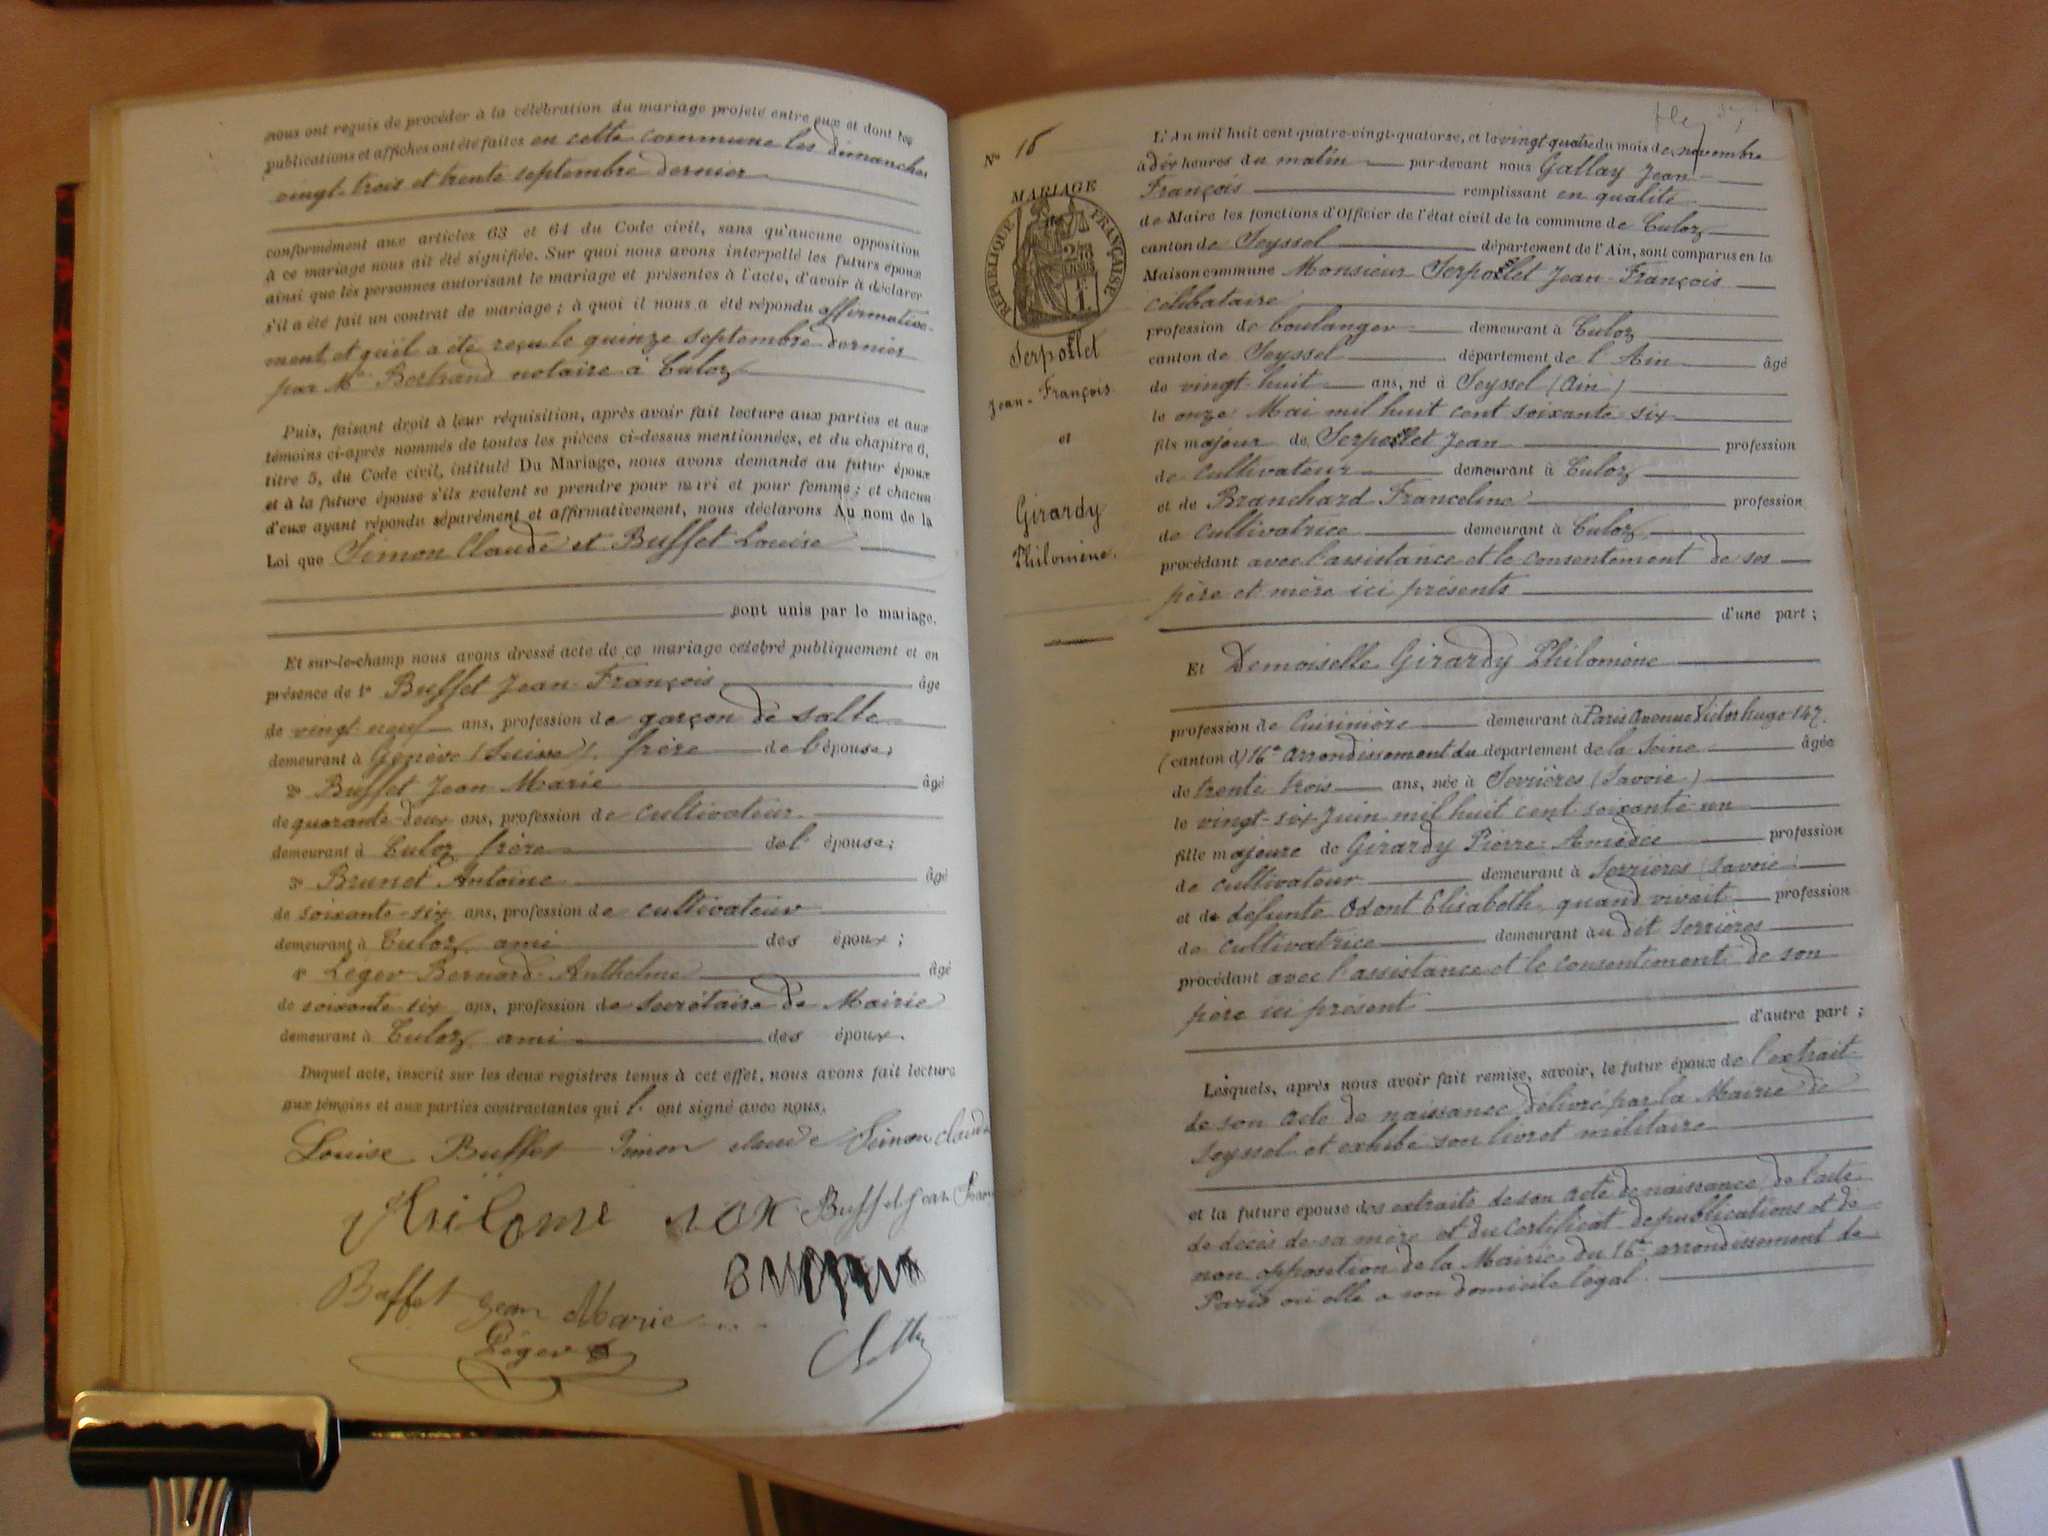 nous ont requis de procéder à la célébration du mariage projeté entre eux et dont les
publications et affiches ont été faites en cette commune les dimanches
vingt-trois et trente septembre dernier
conformément aux articles 63 et 64 du Code civil, sans qu'aucune opposition
à ce mariage nous ait été signifiée. Sur quoi nous avons interpellé les futurs époux
ainsi que les personnes autorisant le mariage et présentes à l'acte, d'avoir à déclarer
s'il a été fait un contrat de mariage ; à quoi il nous a été répondu affirmative-
ment, et qu'il a été reçu le quinze septembre dernier
par Me Bertrand notaire à Culoz
Puis, faisant droit à leur réquisition, après avoir fait lecture aux parties et aux
témoins ci-après nommés de toutes les pièces ci-dessus mentionnées, et du chapitre 6,
titre 5, du Code civil, intitulé Du Mariage, nous avons demandé au futur époux
et à la future épouse s'ils veulent se prendre pour mari et pour femme ; et chacun
d'eux ayant répondu séparément et affirmativement, nous déclarons Au nom de la
Loi que Simon Claude et Buffet Louise
sont unis par le mariage.
Et sur-le-champ nous avons dressé acte de ce mariage célébré publiquement et en
présence de 1° Buffet Jean-François âgé
de vingt-neuf ans, profession de garçon de salle
demeurant à Genève (Suisse), frère de l'épouse;
2° Buffet Jean Marie âgé
de quarante-deux ans, profession de cultivateur
demeurant à Culoz frère de l' épouse;
3° Brunet Antoine âgé
de soixante-six ans, profession de cultivateur
demeurant à Culoz, ami des époux ;
4° Léger Bernard-Anthelme âgé
de soixante six ans, profession de secrétaire de Mairie
demeurant à Culoz ami des époux.
Duquel acte, inscrit sur les deux registres tenus à cet effet, nous avons fait lecture
aux témoins et aux parties contractantes qui l' ont signé avec nous.
Louise Buffet Simon claude Simon claude
Buffet Jean Fran
Buffet Jean Marie
Léger
N° 16
MARIAGE
RÉPUBLIQUE FRANÇAISE
Serpollet
Jean-François
et
Girardy
Philomène.
L'An mil huit cent quatre-vingt-quatorze, et le vingt quatre du mois de novembre
à dix heures du matin par-devant nous Gallay Jean-
François remplissant en qualité
de Maire les fonctions d'Officier de l'état civil de la commune de Culoz
canton de Seyssel département de l'Ain, sont comparus en la
Maison commune Monsieur Serpollet Jean-François
célibataire
profession de boulanger demeurant à Culoz
canton de Seyssel département de l'Ain âgé
de vingt-huit ans, né à Seyssel (Ain)
le onze Mai mil huit cent soixante six
fils majeur de Serpollet Jean profession
de cultivateur demeurant à Culoz
et de Branchard Franceline profession
de cultivatrice demeurant à Culoz
procédant avec l'assistance et le consentement de ses
père et mère ici présents
d'une part ;
Et Demoiselle Girardy Philomène
profession de Cuisinière demeurant à Paris avenue Victor hugo 147.
(canton d) 16e arrondissement du département de la Seine âgée
de trente trois ans, née à Serrières (Savoie)
le vingt-six Juin mil huit cent soixante un
fille majeure de Girardy Pierre-Amédée profession
de cultivateur demeurant à Serrières (Savoie)
et de défunte Odont Elisabeth, quand vivait profession
de cultivatrice demeurant au dit Serrières
procédant avec l'assistance et le consentement de son
père ici présent
d'autre part ;
Lesquels, après nous avoir fait remise, savoir, le futur époux de l'extrait
de son acte de naissance délivré par la Mairie de
Seyssel et exhibé son livret militaire
et la future épouse des extraits de son acte de naissance, de l'acte
de décès de sa mère et du certificat de publications et de
non opposition de la Mairie du 16e arrondissement de
Paris où elle a son domicile légal.